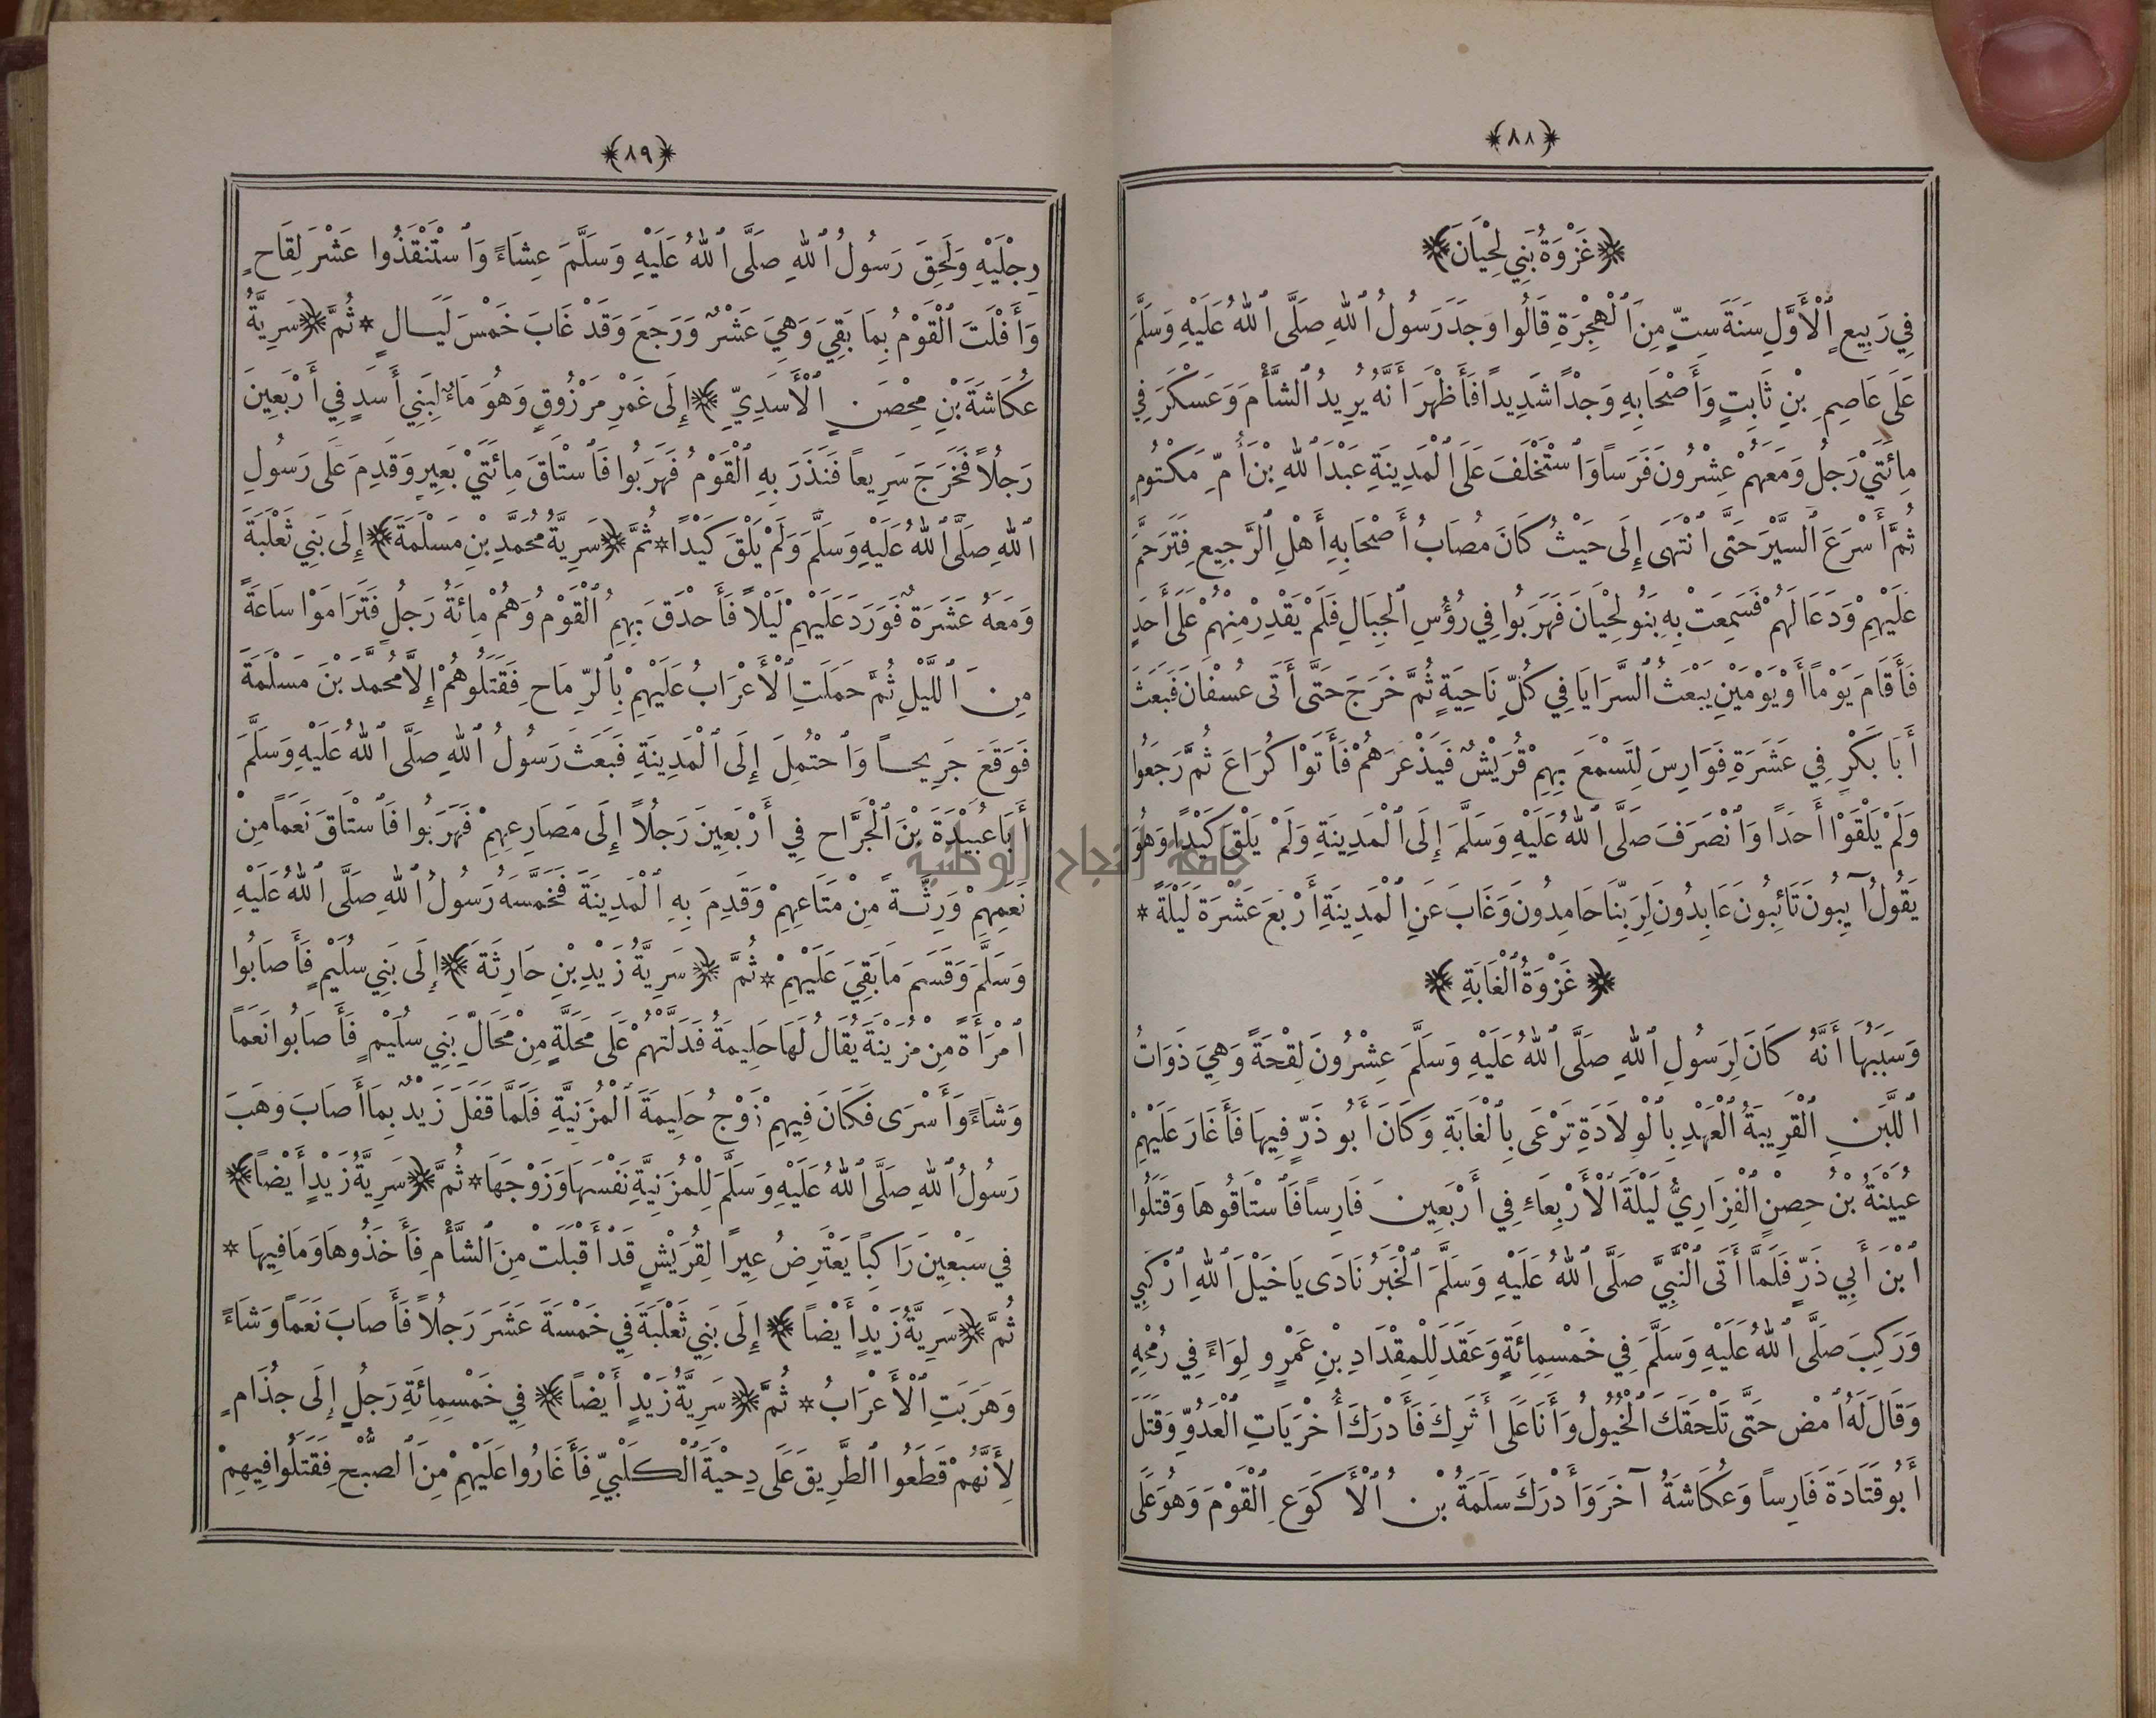 ﴿٨٨﴾
﴿غَزْوَةُ بَنِي لِحْيَانَ﴾
فِي رَبِيعٍ ٱلْأَوَّلِ سَنَةَ سِتٍّ مِنَ ٱلْهِجْرَةِ قَالُوا وَجَدَ رَسُولُ ٱللهِ صَلَّى ٱللهُ عَلَيْهِ وَسَلَّمَ
عَلَى عَاصِمِ بْنِ ثَابِتٍ وَأَصْحَابِهِ وَجْدًا شَدِيدًا فَأَظْهَرَ أَنَّهُ يُرِيدُ ٱلشَّأْمَ وَعَسْكَرَ فِي
مِائَتَيْ رَجُلٍ وَمَعَهُمْ عِشْرُونَ فَرَسًا وَٱسْتَخْلَفَ عَلَى ٱلْمَدِينَةِ عَبْدَ ٱللهِ بْنَ أُمِّ مَكْتُومٍ
ثُمَّ أَسْرَعَ ٱلسَّيْرَ حَتَّى ٱنْتَهَى إِلَى حَيْثُ كَانَ مُصَابُ أَصْحَابِهِ أَهْلِ ٱلرَّجِيعِ فَتَرَحَّمَ
عَلَيْهِمْ وَدَعَا لَهُمْ فَسَمِعَتْ بِهِ بَنُو لِحْيَانَ فَهَرَبُوا فِي رُؤُسِ ٱلْجِبَالِ فَلَمْ يَقْدِرْ مِنْهُمْ عَلَى أَحَدٍ
فَأَقَامَ يَوْمًا أَوْ يَوْمَيْنِ يَبْعَثُ ٱلسَّرَايَا فِي كُلِّ نَاحِيَةٍ ثُمَّ خَرَجَ حَتَّى أَتَى عُسْفَانَ فَبَعَثَ
أَبَا بَكْرٍ فِي عَشَرَةِ فَوَارِسَ لِتَسْمَعَ بِهِمْ قُرَيْشٌ فَيَذْعَرَهُمْ فَأَتَوْا كُرَاعَ ثُمَّ رَجَعُوا
وَلَمْ يَلْقَوْا أَحَدًا وَٱنْصَرَفَ صَلَّى ٱللهُ عَلَيْهِ وَسَلَّمَ إِلَى ٱلْمَدِينَةِ وَلَمْ يَلْقَ كَيْدًا وَهُوَ
يَقُولُ آيِبُونَ تَائِبُونَ عَابِدُونَ لِرَبِّنَا حَامِدُونَ وَغَابَ عَنِ ٱلْمَدِينَةِ أَرْبَعَ عَشْرَةَ لَيْلَةً *
﴿غَزْوَةُ ٱلْغَابَةِ﴾
وَسَبَبُهَا أَنَّهُ كَانَ لِرَسُولِ ٱللهِ صَلَّى ٱللهُ عَلَيْهِ وَسَلَّمَ عِشْرُونَ لِقْحَةً وَهِيَ ذَوَاتُ
ٱللَّبَنِ ٱلْقَرِيبَةُ ٱلْعَهْدِ بِٱلْوِلَادَةِ تَرْعَى بِٱلْغَابَةِ وَكَانَ أَبُو ذَرٍّ فِيهَا فَأَغَارَ عَلَيْهِمْ
عُيَيْنَةُ بْنُ حِصْنٍ ٱلْفِزَارِيُّ لَيْلَةَ ٱلْأَرْبِعَاءِ فِي أَرْبَعِينَ فَارِسًا فَٱسْتَاقُوهَا وَقَتَلُوا
ٱبْنَ أَبِي ذَرٍّ فَلَمَّا أَتَى ٱلنَّبِيَّ صَلَّى ٱللهُ عَلَيْهِ وَسَلَّمَ ٱلْخَبَرُ نَادَى يَا خَيْلَ ٱللهِ ٱرْكَبِي
وَرَكِبَ صَلَّى ٱللهُ عَلَيْهِ وَسَلَّمَ فِي خَمْسِمِائَةٍ وَعَقَدَ لِلْمِقْدَادِ بْنِ عَمْرٍو لِوَاءً فِي رُمْحِهِ
وَقَالَ لَهُ ٱمْضِ حَتَّى تَلْحَقَكَ ٱلْخُيُولُ وَأَنَا عَلَى أَثَرِكَ فَأَدْرَكَ أُخْرَيَاتِ ٱلْعَدُوِّ وَقَتَلَ
أَبُو قَتَادَةَ فَارِسًا وَعُكَاشَةُ آخَرَ وَأَدْرَكَ سَلَمَةُ بْنُ ٱلْأَكْوَعِ ٱلْقَوْمَ وَهُوَ عَلَى
﴿٨٩﴾
رِجْلَيْهِ وَلَحِقَ رَسُولُ ٱللهِ صَلَّى ٱللهُ عَلَيْهِ وَسَلَّمَ عِشَاءً وَٱسْتَنْقَذُوا عَشْرَ لِقَاحٍ
وَأَفْلَتَ ٱلْقَوْمُ بِمَا بَقِيَ وَهِيَ عَشْرٌ وَرَجَعَ وَقَدْ غَابَ خَمْسَ لَيَالٍ * ثُمَّ ﴿سَرِيَّةُ
عُكَاشَةَ بْنِ مِحْصَنٍ ٱلْأَسَدِيِّ﴾ إِلَى غَمْرِ مَرْزُوقٍ وَهُوَ مَاءٌ لِبَنِي أَسَدٍ فِي أَرْبَعِينَ
رَجُلًا فَخَرَجَ سَرِيعًا فَنَذَرَ بِهِ ٱلْقَوْمُ فَهَرَبُوا فَٱسْتَاقَ مِائَتَيْ بَعِيرٍ وَقَدِمَ عَلَى رَسُولِ
ٱللهِ صَلَّى ٱللهُ عَلَيْهِ وَسَلَّمَ وَلَمْ يَلْقَ كَيْدًا * ثُمَّ ﴿سَرِيَّةُ مُحَمَّدِ بْنِ مَسْلَمَةَ﴾ إِلَى بَنِي ثَعْلَبَةَ
وَمَعَهُ عَشَرَةٌ فَوَرَدَ عَلَيْهِمْ لَيْلًا فَأَحْدَقَ بِهِمِ ٱلْقَوْمُ وَهُمْ مِائَةُ رَجُلٍ فَتَرَامَوْا سَاعَةً
مِنَ ٱللَّيْلِ ثُمَّ حَمَلَتِ ٱلْأَعْرَابُ عَلَيْهِمْ بِٱلرِّمَاحِ فَقَتَلُوهُمْ إِلَّا مُحَمَّدَ بْنَ مَسْلَمَةَ
فَوَقَعَ جَرِيحًا وَٱحْتُمِلَ إِلَى ٱلْمَدِينَةِ فَبَعَثَ رَسُولُ ٱللهِ صَلَّى ٱللهُ عَلَيْهِ وَسَلَّمَ
أَبَا عُبَيْدَةَ بْنَ ٱلْجَرَّاحِ فِي أَرْبَعِينَ رَجُلًا إِلَى مَصَارِعِهِمْ فَهَرَبُوا فَٱسْتَاقَ نَعَمًا مِنْ
نَعَمِهِمْ وَرِثَّةً مِنْ مَتَاعِهِمْ وَقَدِمَ بِهِ ٱلْمَدِينَةَ فَخَمَّسَهُ رَسُولُ ٱللهِ صَلَّى ٱللهُ عَلَيْهِ
وَسَلَّمَ وَقَسَمَ مَا بَقِيَ عَلَيْهِمْ * ثُمَّ ﴿سَرِيَّةُ زَيْدِ بْنِ حَارِثَةَ﴾ إِلَى بَنِي سُلَيْمٍ فَأَصَابُوا
ٱمْرَأَةً مِنْ مُزَيْنَةَ يُقَالُ لَهَا حَلِيمَةُ فَدَلَّتْهُمْ عَلَى مَحَلَّةٍ مِنْ مَحَالِّ بَنِي سُلَيْمٍ فَأَصَابُوا نَعَمًا
وَشَاءً وَأَسْرَى فَكَانَ فِيهِمْ زَوْجُ حَلِيمَةَ ٱلْمُزَنِيَّةِ فَلَمَّا قَفَلَ زَيْدٌ بِمَا أَصَابَ وَهَبَ
رَسُولُ ٱللهِ صَلَّى ٱللهُ عَلَيْهِ وَسَلَّمَ لِلْمُزَنِيَّةِ نَفْسَهَا وَزَوْجَهَا * ثُمَّ ﴿سَرِيَّةُ زَيْدٍ أَيْضًا﴾
فِي سَبْعِينَ رَاكِبًا يَعْتَرِضُ عِيرًا لِقُرَيْشٍ قَدْ أَقْبَلَتْ مِنَ ٱلشَّأْمِ فَأَخَذُوهَا وَمَا فِيهَا *
ثُمَّ ﴿سَرِيَّةُ زَيْدٍ أَيْضًا﴾ إِلَى بَنِي ثَعْلَبَةَ فِي خَمْسَةَ عَشَرَ رَجُلًا فَأَصَابَ نَعَمًا وَشَاءً
وَهَرَبَتِ ٱلْأَعْرَابُ * ثُمَّ ﴿سَرِيَّةُ زَيْدٍ أَيْضًا﴾ فِي خَمْسِمِائَةِ رَجُلٍ إِلَى جُذَامٍ
لِأَنَّهُمْ قَطَعُوا ٱلطَّرِيقَ عَلَى دِحْيَةَ ٱلْكَلْبِيِّ فَأَغَارُوا عَلَيْهِمْ مِنَ ٱلصُّبْحِ فَقَتَلُوا فِيهِمْ
جامعة النجاح الوطنية